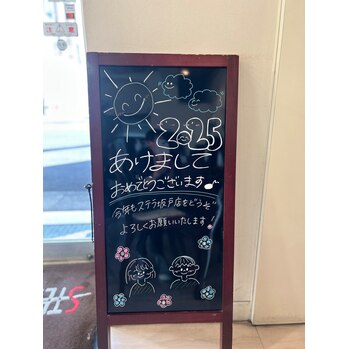 2025
あけまして
おめでとうございます♪
今年もステラ坂戸店をどうぞ
よろしくお願いいたします！